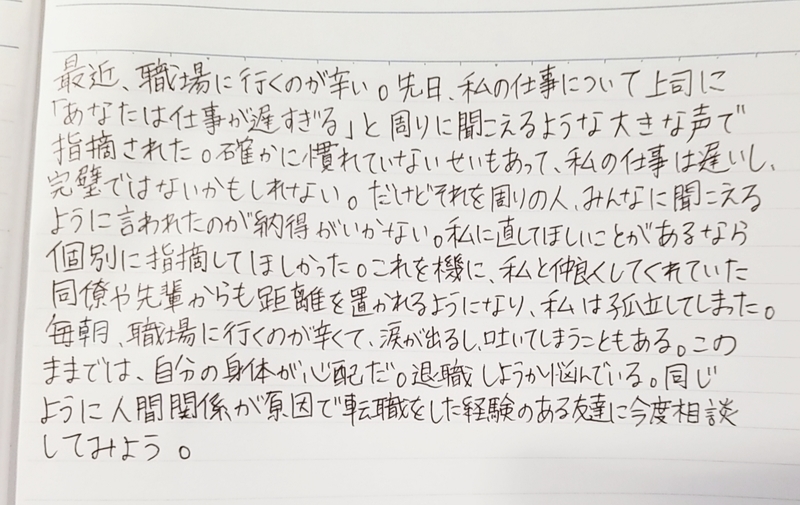 最近、職場に行くのが辛い。先日、私の仕事について上司に
「あなたは仕事が遅すぎる」と周りに聞こえるような大きな声で
指摘された。確かに慣れていないせいもあって、私の仕事は遅いし、
完璧ではないかもしれない。だけどそれを周りの人、みんなに聞こえる
ように言われたのが納得がいかない。私に直してほしいことがあるなら
個別に指摘してほしかった。これを機に、私と仲良くしてくれていた
同僚や先輩からも距離を置かれるようになり、私は孤立してしまった。
毎朝、職場に行くのが辛くて、涙が出るし、吐いてしまうこともある。この
ままでは、自分の身体が心配だ。退職しようか悩んでいる。同じ
ように人間関係が原因で転職をした経験のある友達に今度相談
してみよう。